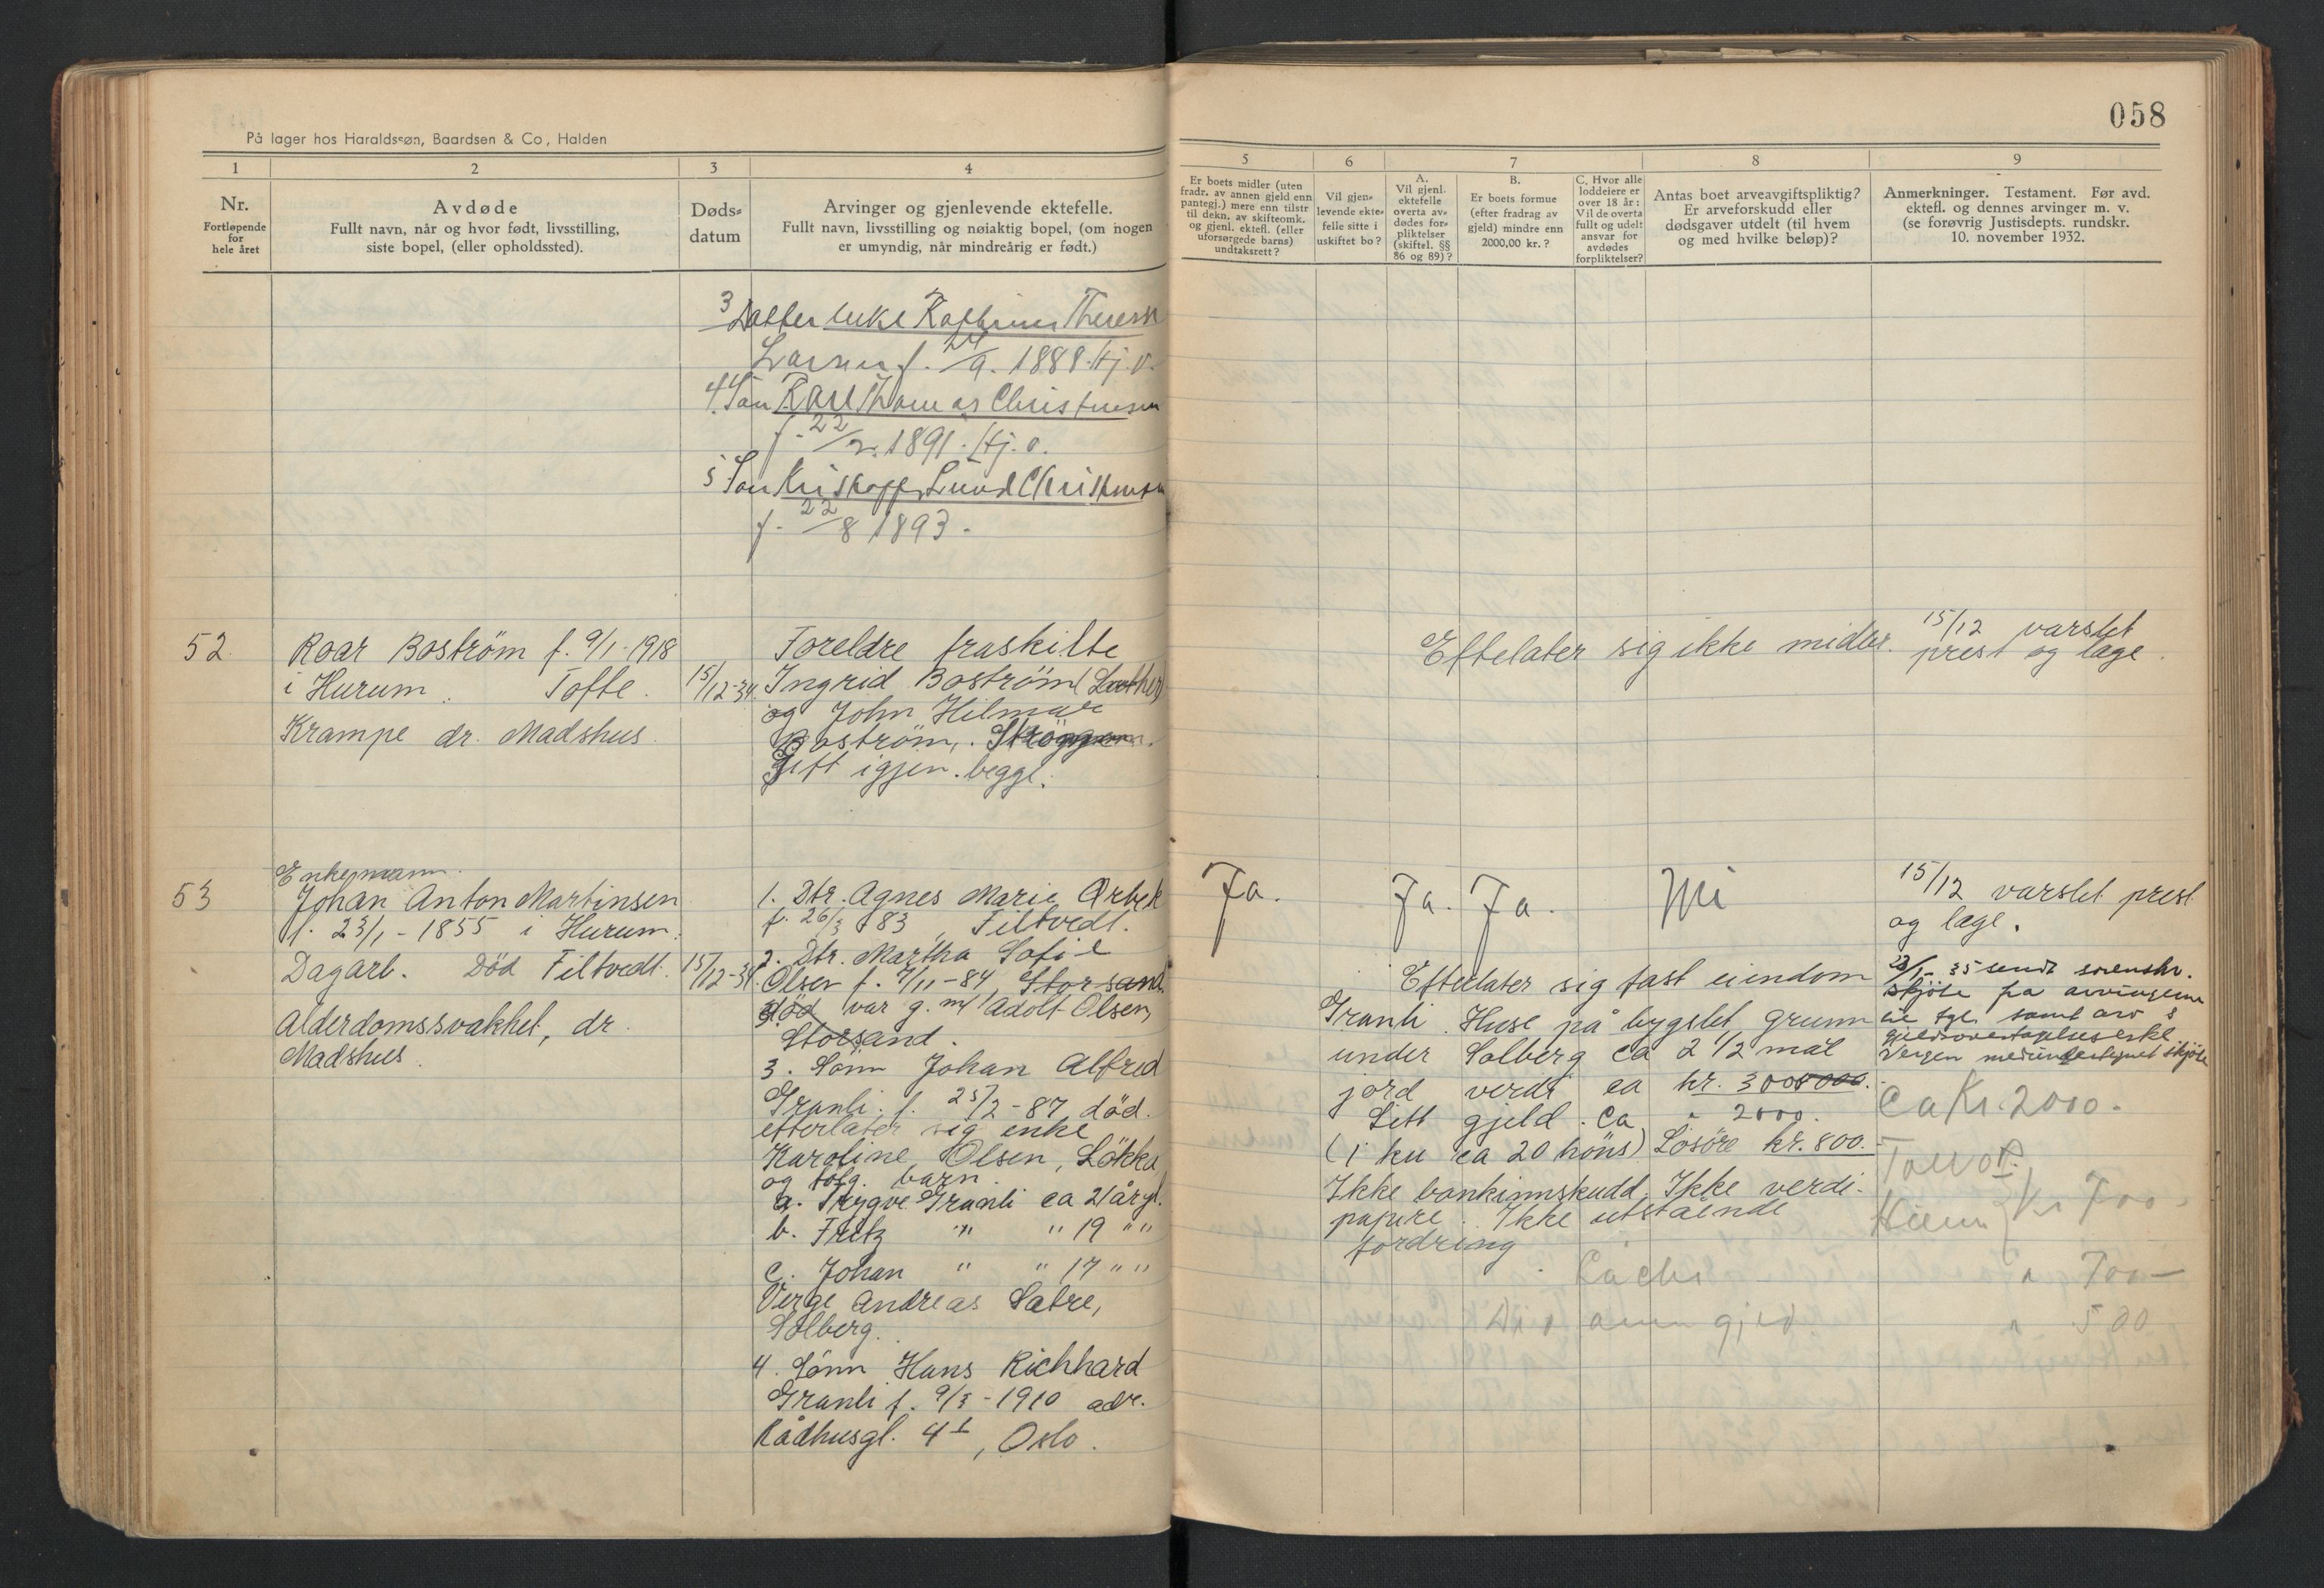 058
På lager hos Haraldssøn, Baardsen & Co, Halden
1
2
3
4
5
6
7
8
9
Nr.
Fortløpende
for
hele året
Avdøde
Fullt navn, når og hvor født, livsstilling,
siste bopel, (eller opholdssted).
Døds-
datum
Arvinger og gjenlevende ektefelle.
Fullt navn, livsstilling og nøiaktig bopel, (om nogen
er umyndig, når mindreårig er født.)
Er boets midler (uten
fradr. av annen gjeld enn
pantegj.) mere enn tilstr
til dekn. av skifteomk.
og gjenl. ektef. (eller
uforsørgede barns)
undtaksrett?
Vil gjen-
levende ekte-
felle sitte i
uskiftet bo?
A.
Vil gjenl.
ektefelle
overta av-
dødes for-
pliktelser
(skiftel. §§
86 og 89)?
B.
Er boets formue
(efter fradrag av
gjeld) mindre enn
2000,00 kr.?
C. Hvor alle
loddeiere er
over 18 år:
Vil de overta
fullt og udelt
ansvar for
avdødes
forpliktelser?
Antas boet arveavgiftspliktig?
Er arveforskudd eller
dødsgaver utdelt (til hvem
og med hvilke beløp)?
Anmerkninger. Testament. Før avd.
ektefl. og dennes arvinger m. v.
(se forøvrig Justisdepts. rundskr.
10. november 1932.
3 Datter
f. 24/9. 1888. Hj. v.
4. Søn Karl Thomas Christensen
f. 22/2. 1891. Hj. v.
5 Søn Kristoffer Lund Christensen
f. 22/8 1893.
52.
Roar Boström f. 9/1-1918
i Hurum. Tofte.
Krampe dr. Madshus.
15/12-34.
Foreldre fraskilte
Ingrid Boström
og John Hilmar
Boström,.
Gift igjen. begge.
Eftelater sig ikke midler.
15/12 varslet
prest og læge.
53
Enkemann.
Johan Anton Martinsen
f. 23/1-1855 i Hurum.
Dagarb. Död Filtvedt.
Alderdomssvakhet, dr.
Madshus.
15/12-34.
1. Dtr. Agnes Marie Orbek
f. 26/3 83, Filtvedt.
2. Dtr. Martha Sofie
Olsen f. 7/11-84, Storsand
död var g. m/ Adolf Olsen,
Storsand.
3. Sönn Johan Alfred
Granli. f. 25/2-87, död.
etterlater sig enke
Karoline Olsen, Lökka
og følg. barn.
a. Trygve Granli ca 21 årgl.
b. Fritz " " 19 " "
c. Johan " " 17 " "
Verge Andreas Sætre,
Solberg.
4. Sönn Hans Richhard
Granli f. 9/3-1910 adr.
Rådhusgt. 4 , Oslo.
Ja.
Ja. Ja.
Nei
Efterlater sig fast eiendom
Granli. Huse på bygslet grunn
under Solberg ca 2 1/2 mål
jord verdi ca kr. 3000
Litt gjeld. ca " 2000.
(1 ku ca 20 höns) Lösöre kr. 800.-
Ikke bankinnskudd. Ikke verdi-
papire. Ikke utstående
fordring.
15/12 varslet prest
og læge.
23/1-35 sendt sorenskr.
skjöte fra arvingerne
gjeldsovertagelseserkl.
Vergen medundertegnet skjöte
Ca Kr. 2000.
Kr 700
" 700-
" 500